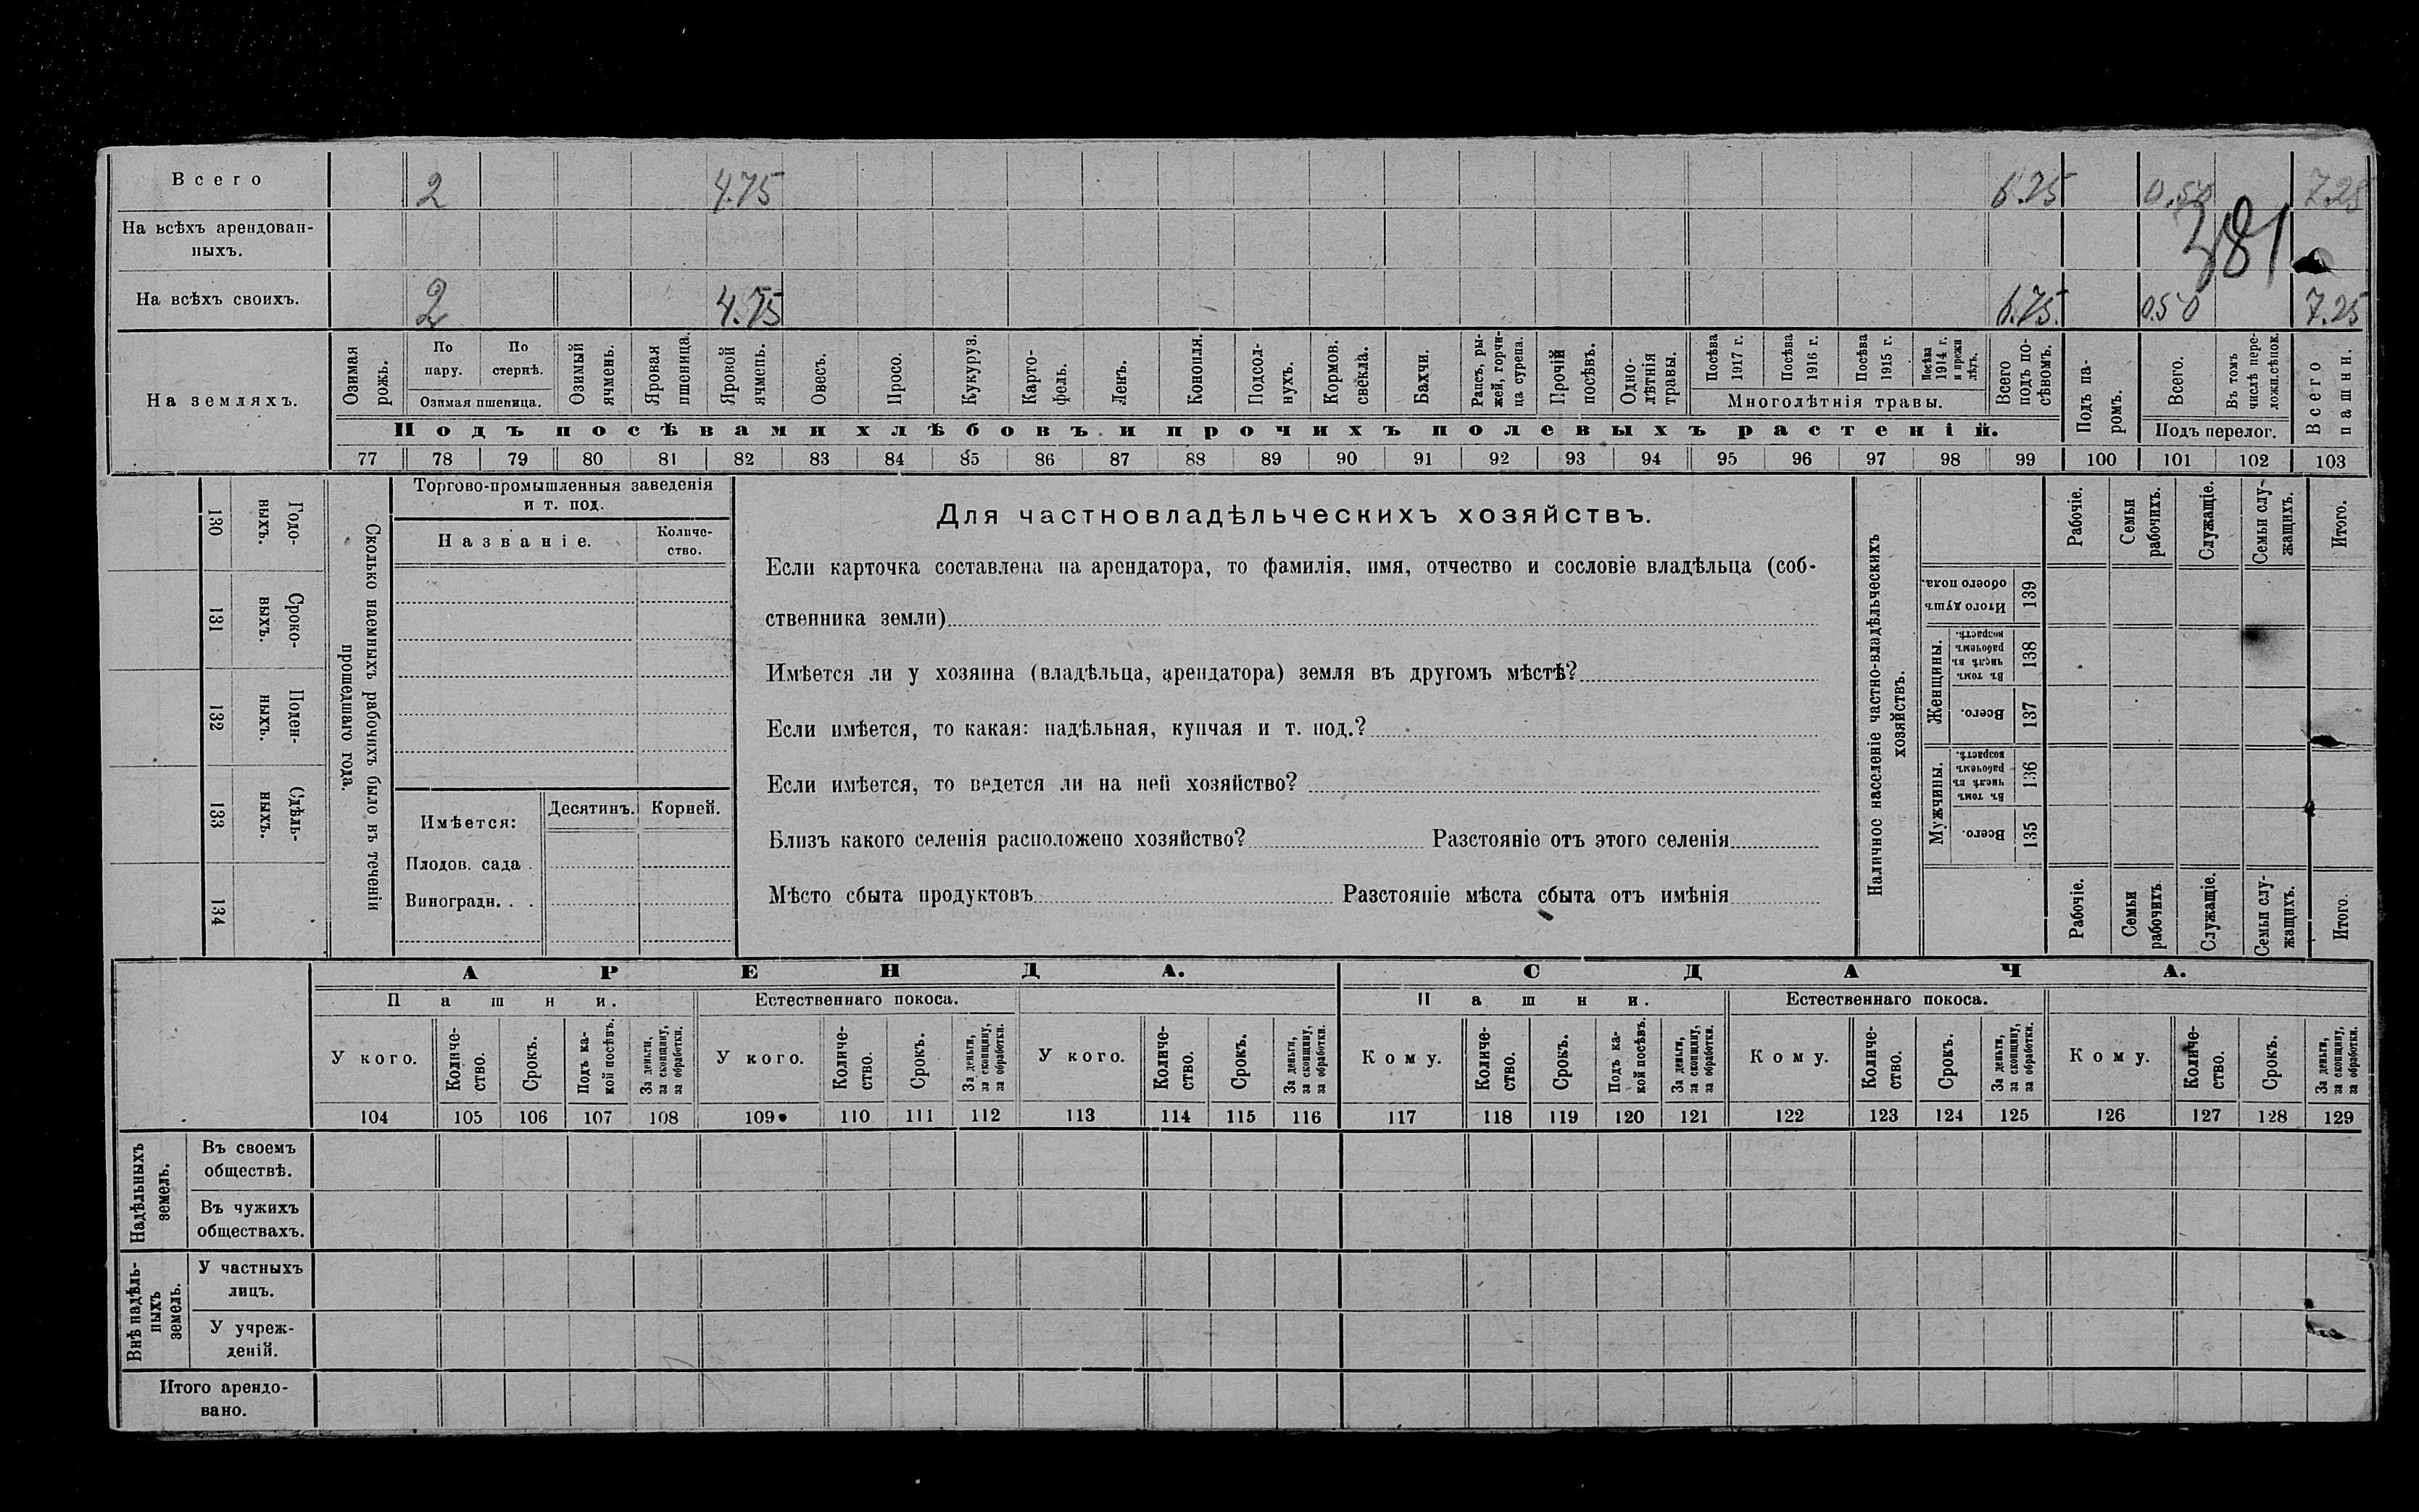 Всего 2 4.75 6.75 0.50 7.25
381
На всѣхъ арендован-
ныхъ.
На всѣхъ своихъ. 2 4.75 6.75. 0.50 7.25
На земляхъ.
Озимая рожь.
По пару.
По стернѣ.
Озимая пшеница.
Озимый ячмень.
Яровая пшеница.
Яровой ячмень.
Овесъ.
Просо.
Кукуруз.
Карто-
фель.
Ленъ.
Конопля.
Подсол-
нухъ.
Кормов. свекла.
Бахчи.
Рапсъ, ры-
жей, горчи-
ца сурепа.
Прочій посѣвъ.
Одно-
лѣтнія травы.
Посѣва 1917 г.
Посѣва 1916 г.
Посѣва 1915 г.
Посѣва 1914 г. и прежн лѣтъ.
Многолѣтнія травы.
Всего подъ по-
сѣвомъ.
Подъ посѣвами хлѣбовъ и прочихъ полевыхъ растеній.
Подъ па-
ромъ.
Всего.
Въ томъ числѣ пере-
ложн.сѣнок.
Подъ перелог.
Всего пашни.
77 78 79 80 81 82 83 84 85 86 87 88 89 90 91 92 93 94 95 96 97 98 99 100 101 102 103
130 Годо-
ныхъ.
131 Сроко-
выхъ.
132 Поден-
ныхъ.
133 Сдѣль-
ныхъ.
134
Сколько наемныхъ рабочихъ было въ теченіи
прошедшаго года.
Торгово-промышленныя заведенія
и т. под.
Названіе.
Количе-
ство.
Имѣется: Десятинъ. Корней.
Плодов. сада .
Виноградн. . .
Для частновладѣльческихъ хозяйствъ.
Если карточка составлена на арендатора, то фамилія, имя, отчество и сословіе владѣльца (соб-
ственника земли)
Имѣется ли у хозяина (владѣльца, арендатора) земля въ другомъ мѣстѣ?
Если имѣется, то какая: надѣльная, купчая и т. под.?
Если имѣется, то ведется ли на ней хозяйство?
Близъ какого селенія расположено хозяйство? Разстояніе отъ этого селенія
Мѣсто сбыта продуктовъ Разстояніе мѣста сбыта отъ имѣнія
Наличное населеніе частно-владѣльческихъ
хозяйствъ.
Рабочіе.
Семьи рабочихъ.
Служащіе.
Семьи слу-
жащихъ.
Итого.
Итого душъ обоего пола. 139
Женщины.
Въ томъ числѣ въ рабочемъ возрастѣ. 138
Всего. 137
Мужчины.
Въ томъ числѣ въ рабочемъ возрастѣ. 136
Всего. 135
Рабочіе.
Семьи рабочихъ
Служащіе.
Семьи слу-
жащихъ.
Итого.
АРЕНДА. СДАЧА.
Пашни. Естественнаго покоса. Пашни. Естественнаго покоса.
У кого.
Количе-
ство.
Срокъ.
Подъ ка-
кой посѣвъ.
За деньги, за скопщину, за обработки.
У кого.
Количе-
ство.
Срокъ.
За деньги, за скопщину, за обработки.
У кого.
Количе-
ство.
Срокъ.
За деньги, за скопщину, за обработки.
Кому.
Количе-
ство.
Срокъ.
Подъ ка-
кой посѣвъ.
За деньги, за скопщину, за обработки.
Кому.
Количе-
ство.
Срокъ.
За деньги, за скопщину, за обработки.
Кому.
Количе-
ство.
Срокъ.
За деньги, за скопщину, за обработки.
104 105 106 107 108 109 110 111 112 113 114 115 116 117 118 119 120 121 122 123 124 125 126 127 128 129
Надѣльныхъ земель.
Въ своемъ
обществѣ.
Въ чужихъ
обществахъ.
Внѣ надѣль-
ныхъ земель.
У частныхъ
лицъ.
У учреж-
деній.
Итого арендо-
вано.